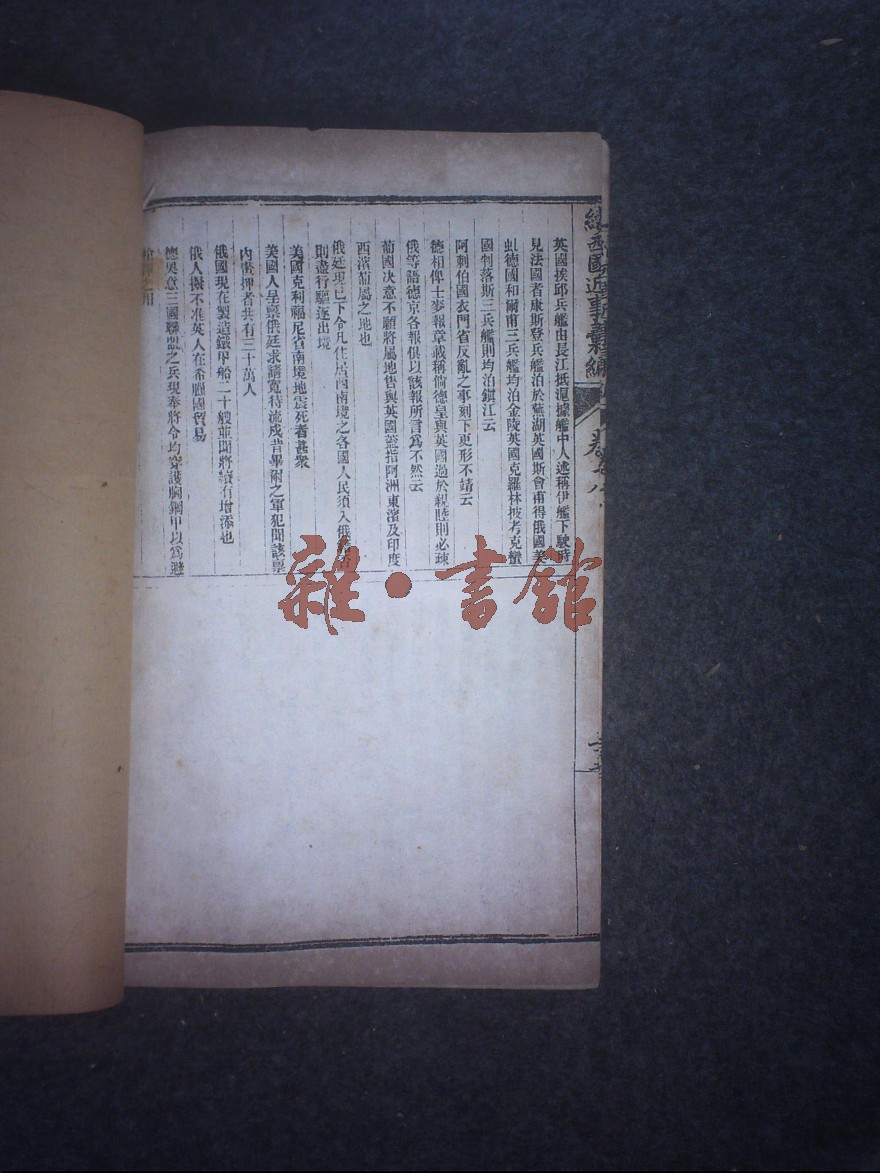 西國近事彙編
英國挨邱兵艦由長江抵滬據艦中人述稱伊艦下駛時
見法國者康斯登兵艦泊於蕪湖英國斯會甫得俄國美
虬德國和爾甫三兵艦均泊金陵英國克羅林坡考克蠻
國制落斯三兵艦則均泊鎮江云
阿剌伯國衣門省反亂之事刻下更形不靖云
德相俾士麥報章載稱倘德皇與英國過於親睦則必疎
俄等語德京各報俱以該報所言爲不然云
葡國決意不願將屬地售與英國蓋指阿洲東濱及印度
西濱葡屬之地也
俄廷現已下令凡住居西南境之各國人民須入俄
則盡行驅逐出境
美國克利福尼省南境地震死者甚衆
美國人呈禀俄廷求請寬待流戍昔畢爾之軍犯聞該禀
內畫押者共有三十萬人
俄國現在製造鐵甲船二十艘並聞將續有增添也
俄人擬不准英人在希臘國貿易
德奧意三國聯盟之兵現奉將令均穿護胸鋼甲以爲避
之用
雜·書館